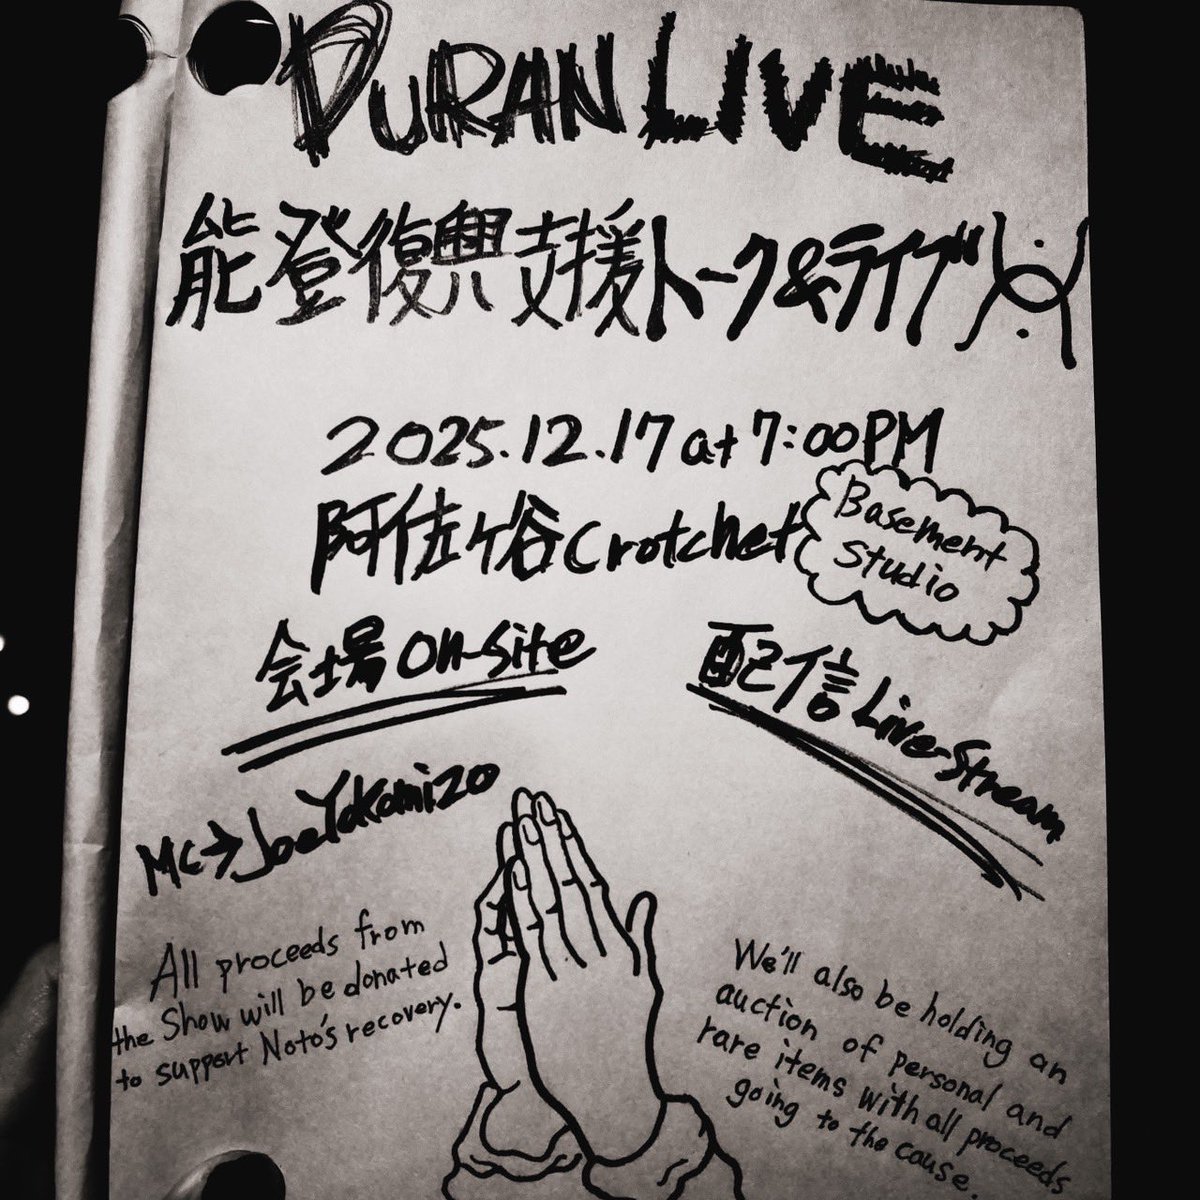 DURAN LIVE
能登復興支援トーク&ライブ
2025.12.17 at 7:00PM
阿佐ヶ谷Crotchet
Basement
Studio
会場 on-site
配信 Live-Stream
MC→Joe Yokomizo
All proceeds from
the Show will be donated
to support Noto's recovery.
We'll also be holding an
auction of personal and
rare items with all proceeds
going to the cause.